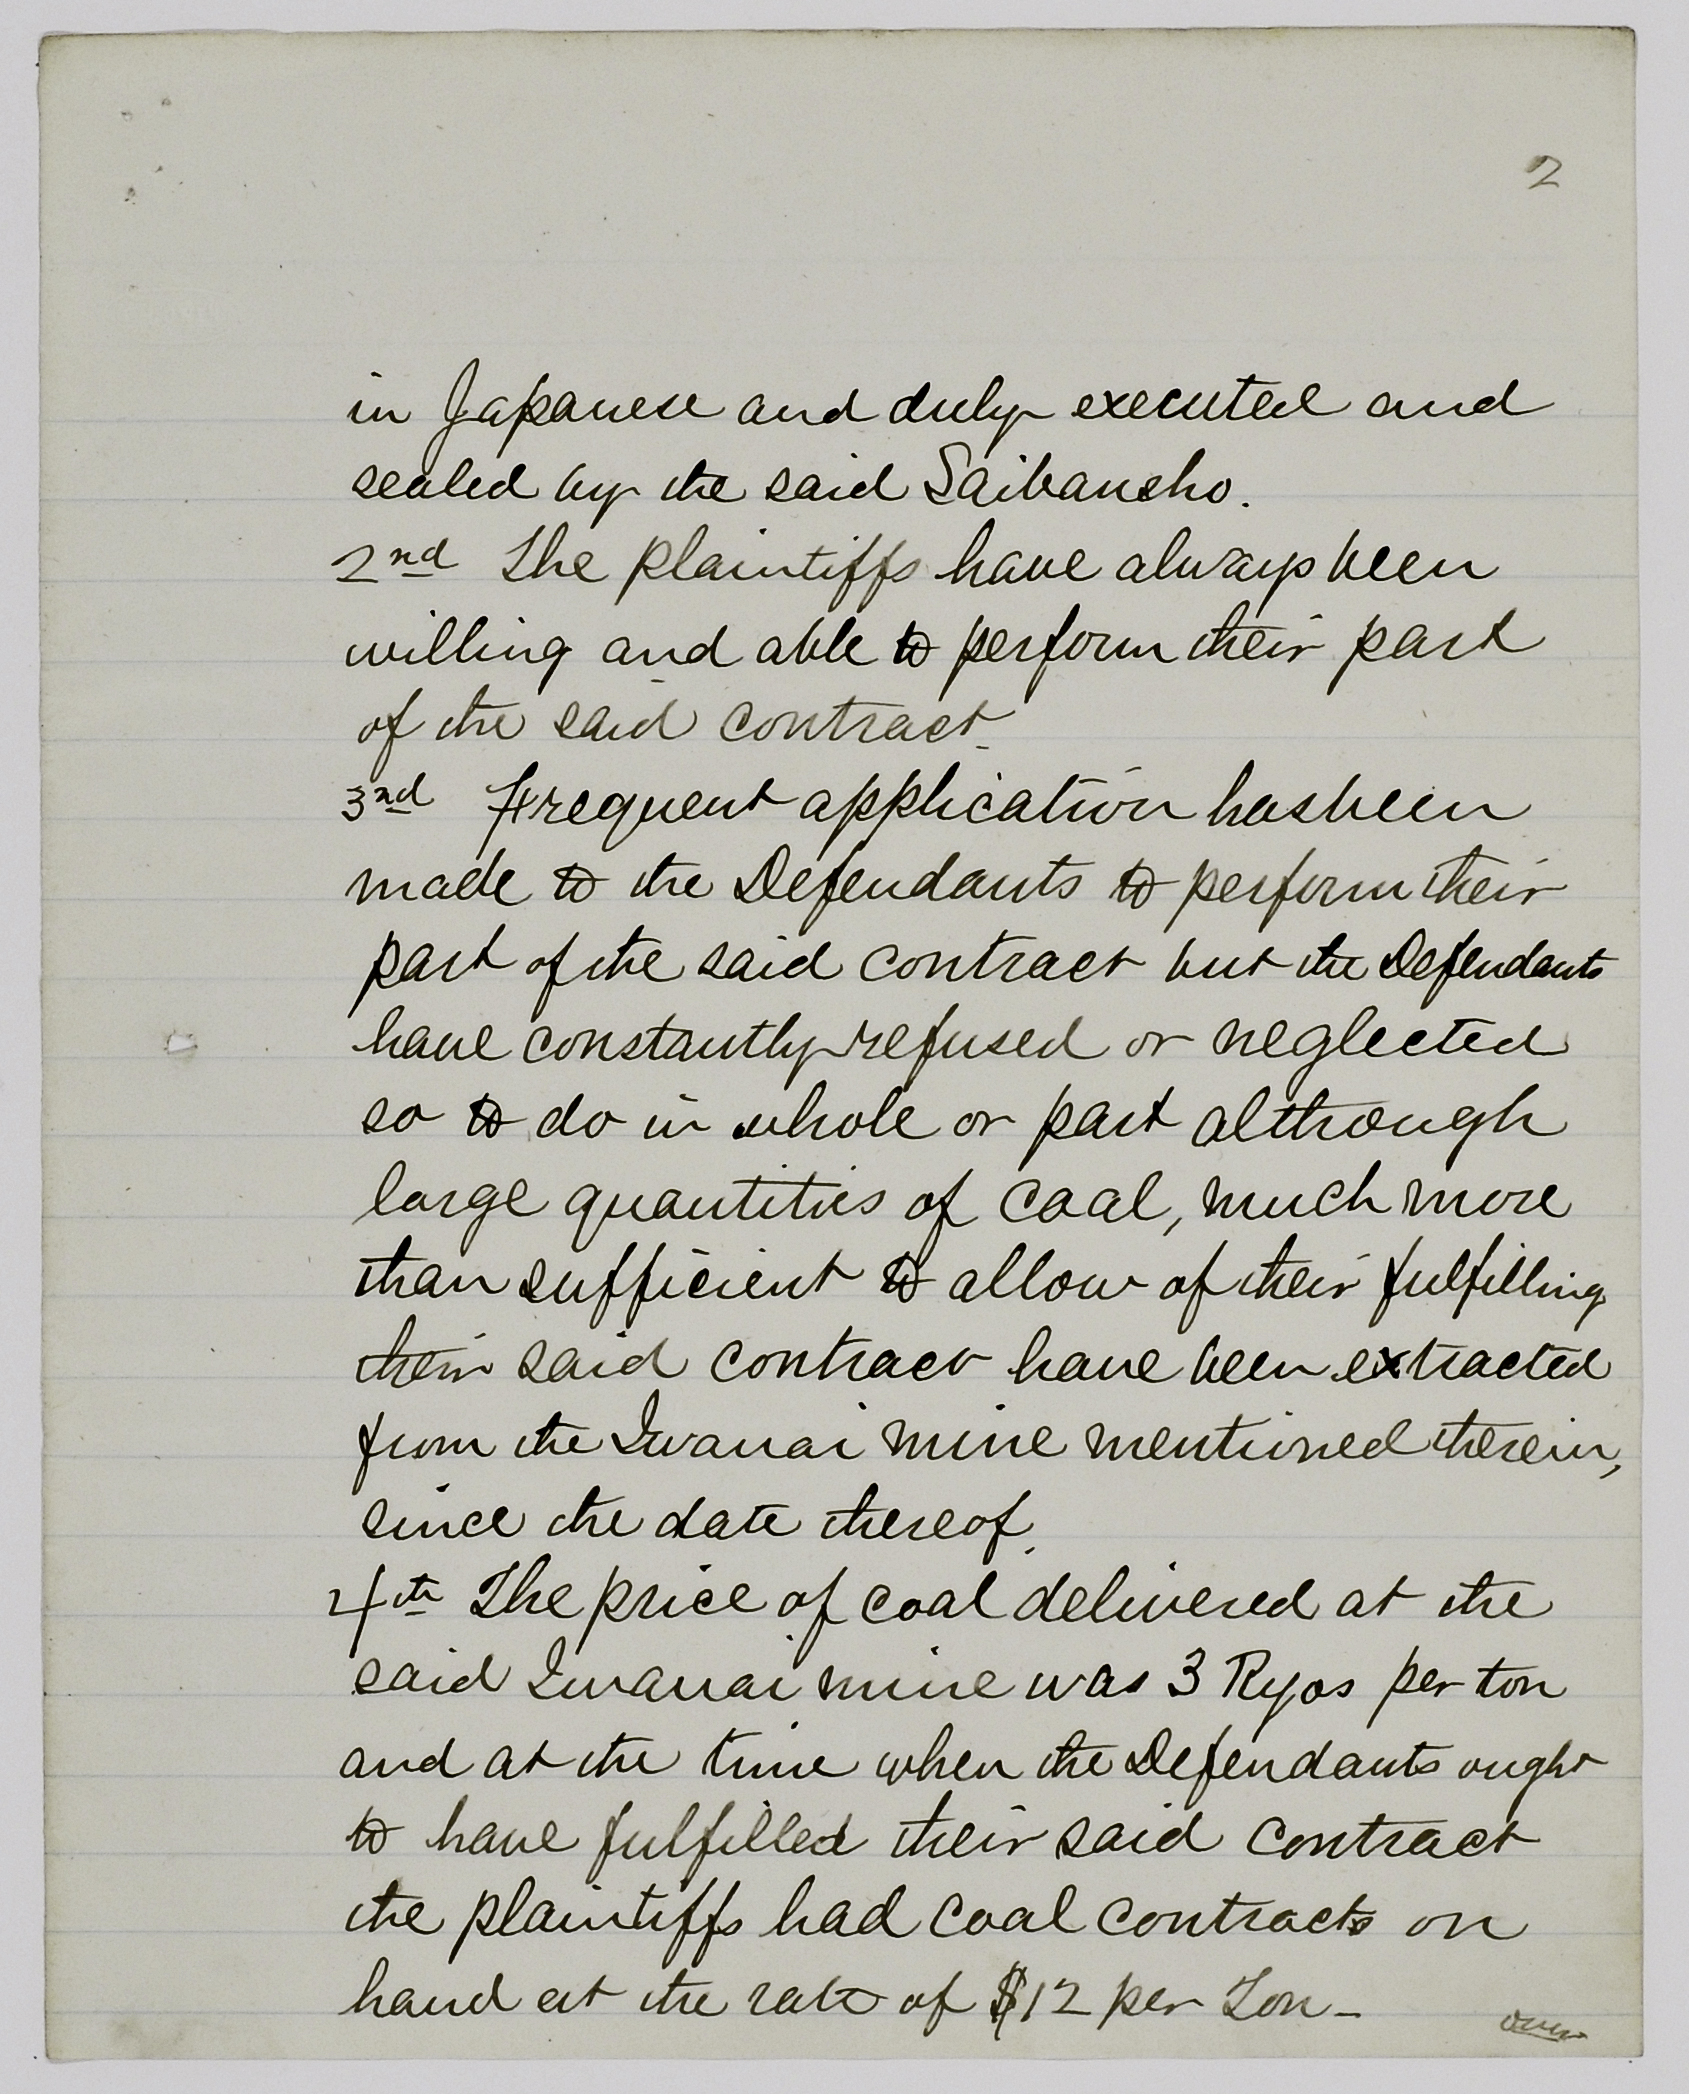 2
in Japanese and duly executed and
sealed by the said Saibansho.
2nd The plaintiffs have always been
willing and able to perform their part
of the said contract.
3rd Frequent application has been
made to the Defendants to perform their
part of the said contract but the Defendants
have constantly refused or neglected
so to do in whole or part although
large quantities of coal, much more
than sufficient to allow of their fulfilling
their said contract have been extracted
from the Iwanai mine mentioned therein,
since the date thereof.
4th The price of coal delivered at the
said Iwanai mine was 3 Ryos per ton
and at the time when the Defendants ought
to have fulfilled their said contract
the plaintiffs had coal contracts on
hand at the rate of $12 per Ton -
over